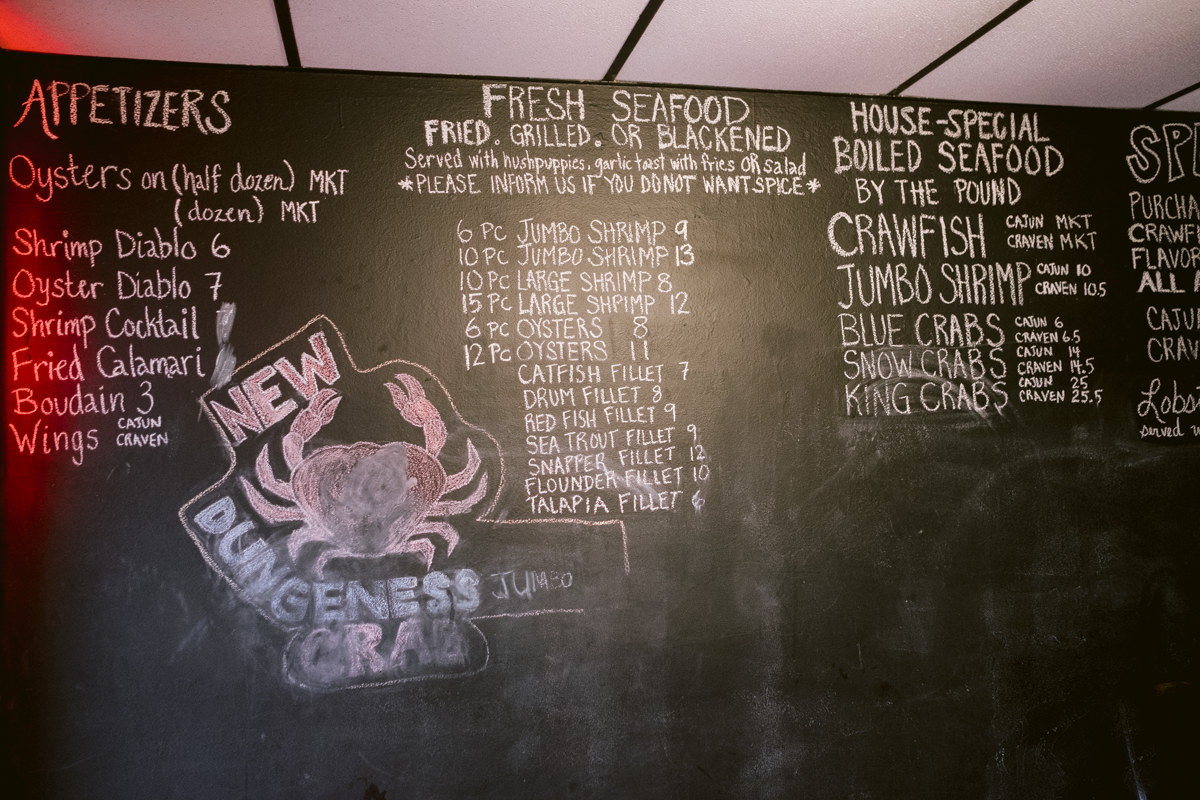 APPETIZERS
Oysters on (half dozen) MKT
(dozen) MKT
Shrimp Diablo 6
Oyster Diablo 7
Shrimp Cocktail
Fried Calamari
Boudain 3
Wings CAJUN
CRAVEN
NEW
DUNGENESS JUMBO
CRAB
FRESH SEAFOOD
FRIED. GRILLED. OR BLACKENED
Served with hushpuppies, garlic toast with fries OR salad
*PLEASE INFORM US IF YOU DO NOT WANT SPICE*
6 PC JUMBO SHRIMP 9
10 PC JUMBO SHRIMP 13
10 PC LARGE SHRIMP 8
15 PC LARGE SHRIMP 12
6 PC OYSTERS 8
12 PC OYSTERS 11
CATFISH FILLET 7
DRUM FILLET 8
RED FISH FILLET 9
SEA TROUT FILLET 9
SNAPPER FILLET 12
FLOUNDER FILLET 10
TALAPIA FILLET 6
HOUSE-SPECIAL
BOILED SEAFOOD
BY THE POUND
CRAWFISH CAJUN MKT
CRAVEN MKT
JUMBO SHRIMP CAJUN 10
CRAVEN 10.5
BLUE CRABS CAJUN 6
CRAVEN 6.5
SNOW CRABS CAJUN 14
CRAVEN 14.5
KING CRABS CAJUN 25
CRAVEN 25.5
SPI
PURCHA
CRAWFI
FLAVOR
ALL
CAJU
CRAV
Lobs
served w